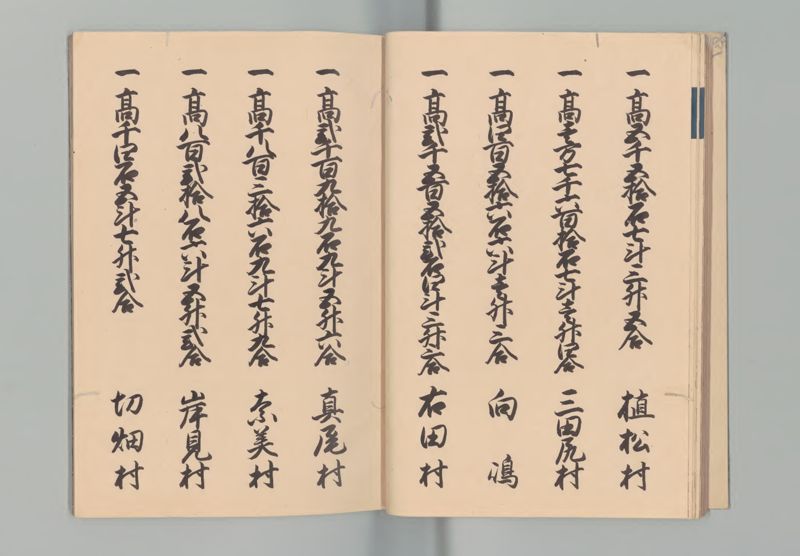 一高五千五拾石七斗三升五合 植松村
一高壱万七千六百拾石七斗壱升四合 三田尻村
一高四百五拾六石六斗壱升三合 向嶋
一高弐千五百五拾弐石四斗三升六合 右田村
一高弐千百九拾九石九斗五升六合 真尾村
一高千八百三拾六石九斗七升九合 奈美村
一高八百弐拾八石六斗五升弐合 岸見村
一高千四石五斗七升弐合 切畑村